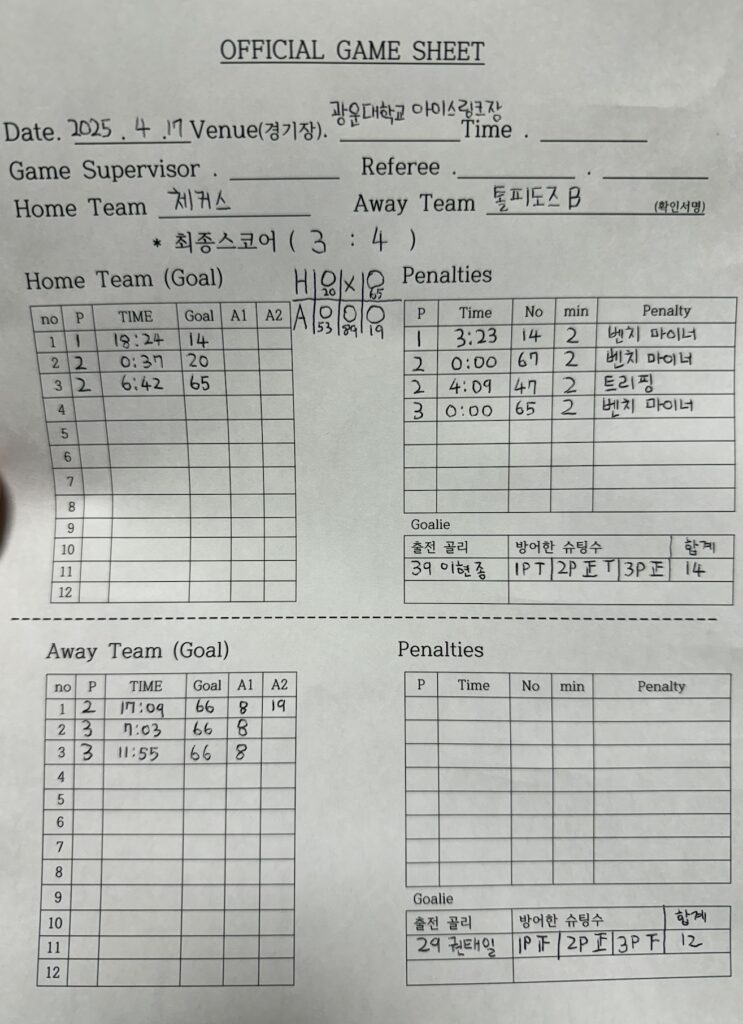 OFFICIAL GAME SHEET
Date. 2025 . 4 . 17 Venue(경기장). 광운대학교 아이스링크장 Time .
Game Supervisor . Referee . .
Home Team 체커스 Away Team 톨피도즈 B (확인서명)
* 최종스코어 ( 3 : 4 )
Home Team (Goal)
H O 20 X O 65
A O 53 O 89 O 19
no P TIME Goal A1 A2
1 1 18:24 14
2 2 0:37 20
3 2 6:42 65
4
5
6
7
8
9
10
11
12
Penalties
P Time No min Penalty
1 3:23 14 2 벤치 마이너
2 0:00 67 2 벤치 마이너
2 4:09 47 2 트리핑
3 0:00 65 2 벤치 마이너
Goalie
출전 골리 방어한 슈팅수 합계
39 이현종 1P T 2P 正 T 3P 正 14
Away Team (Goal)
no P TIME Goal A1 A2
1 2 17:09 66 8 19
2 3 7:03 66 8
3 3 11:55 66 8
4
5
6
7
8
9
10
11
12
Penalties
P Time No min Penalty
Goalie
출전 골리 방어한 슈팅수 합계
29 권태일 1P 正 2P 正 3P 下 12